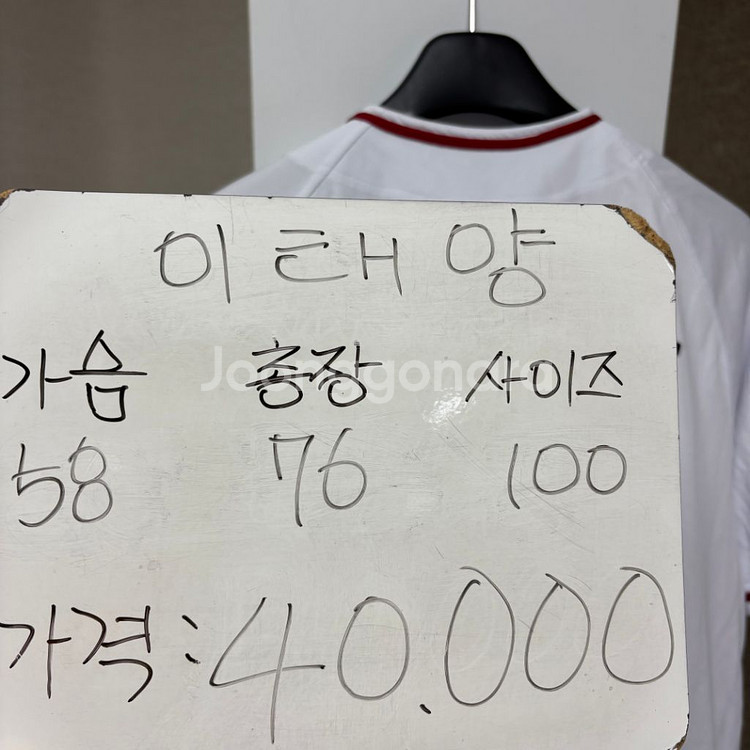 이태양
가슴 총장 사이즈
58 76 100
가격: 40.000